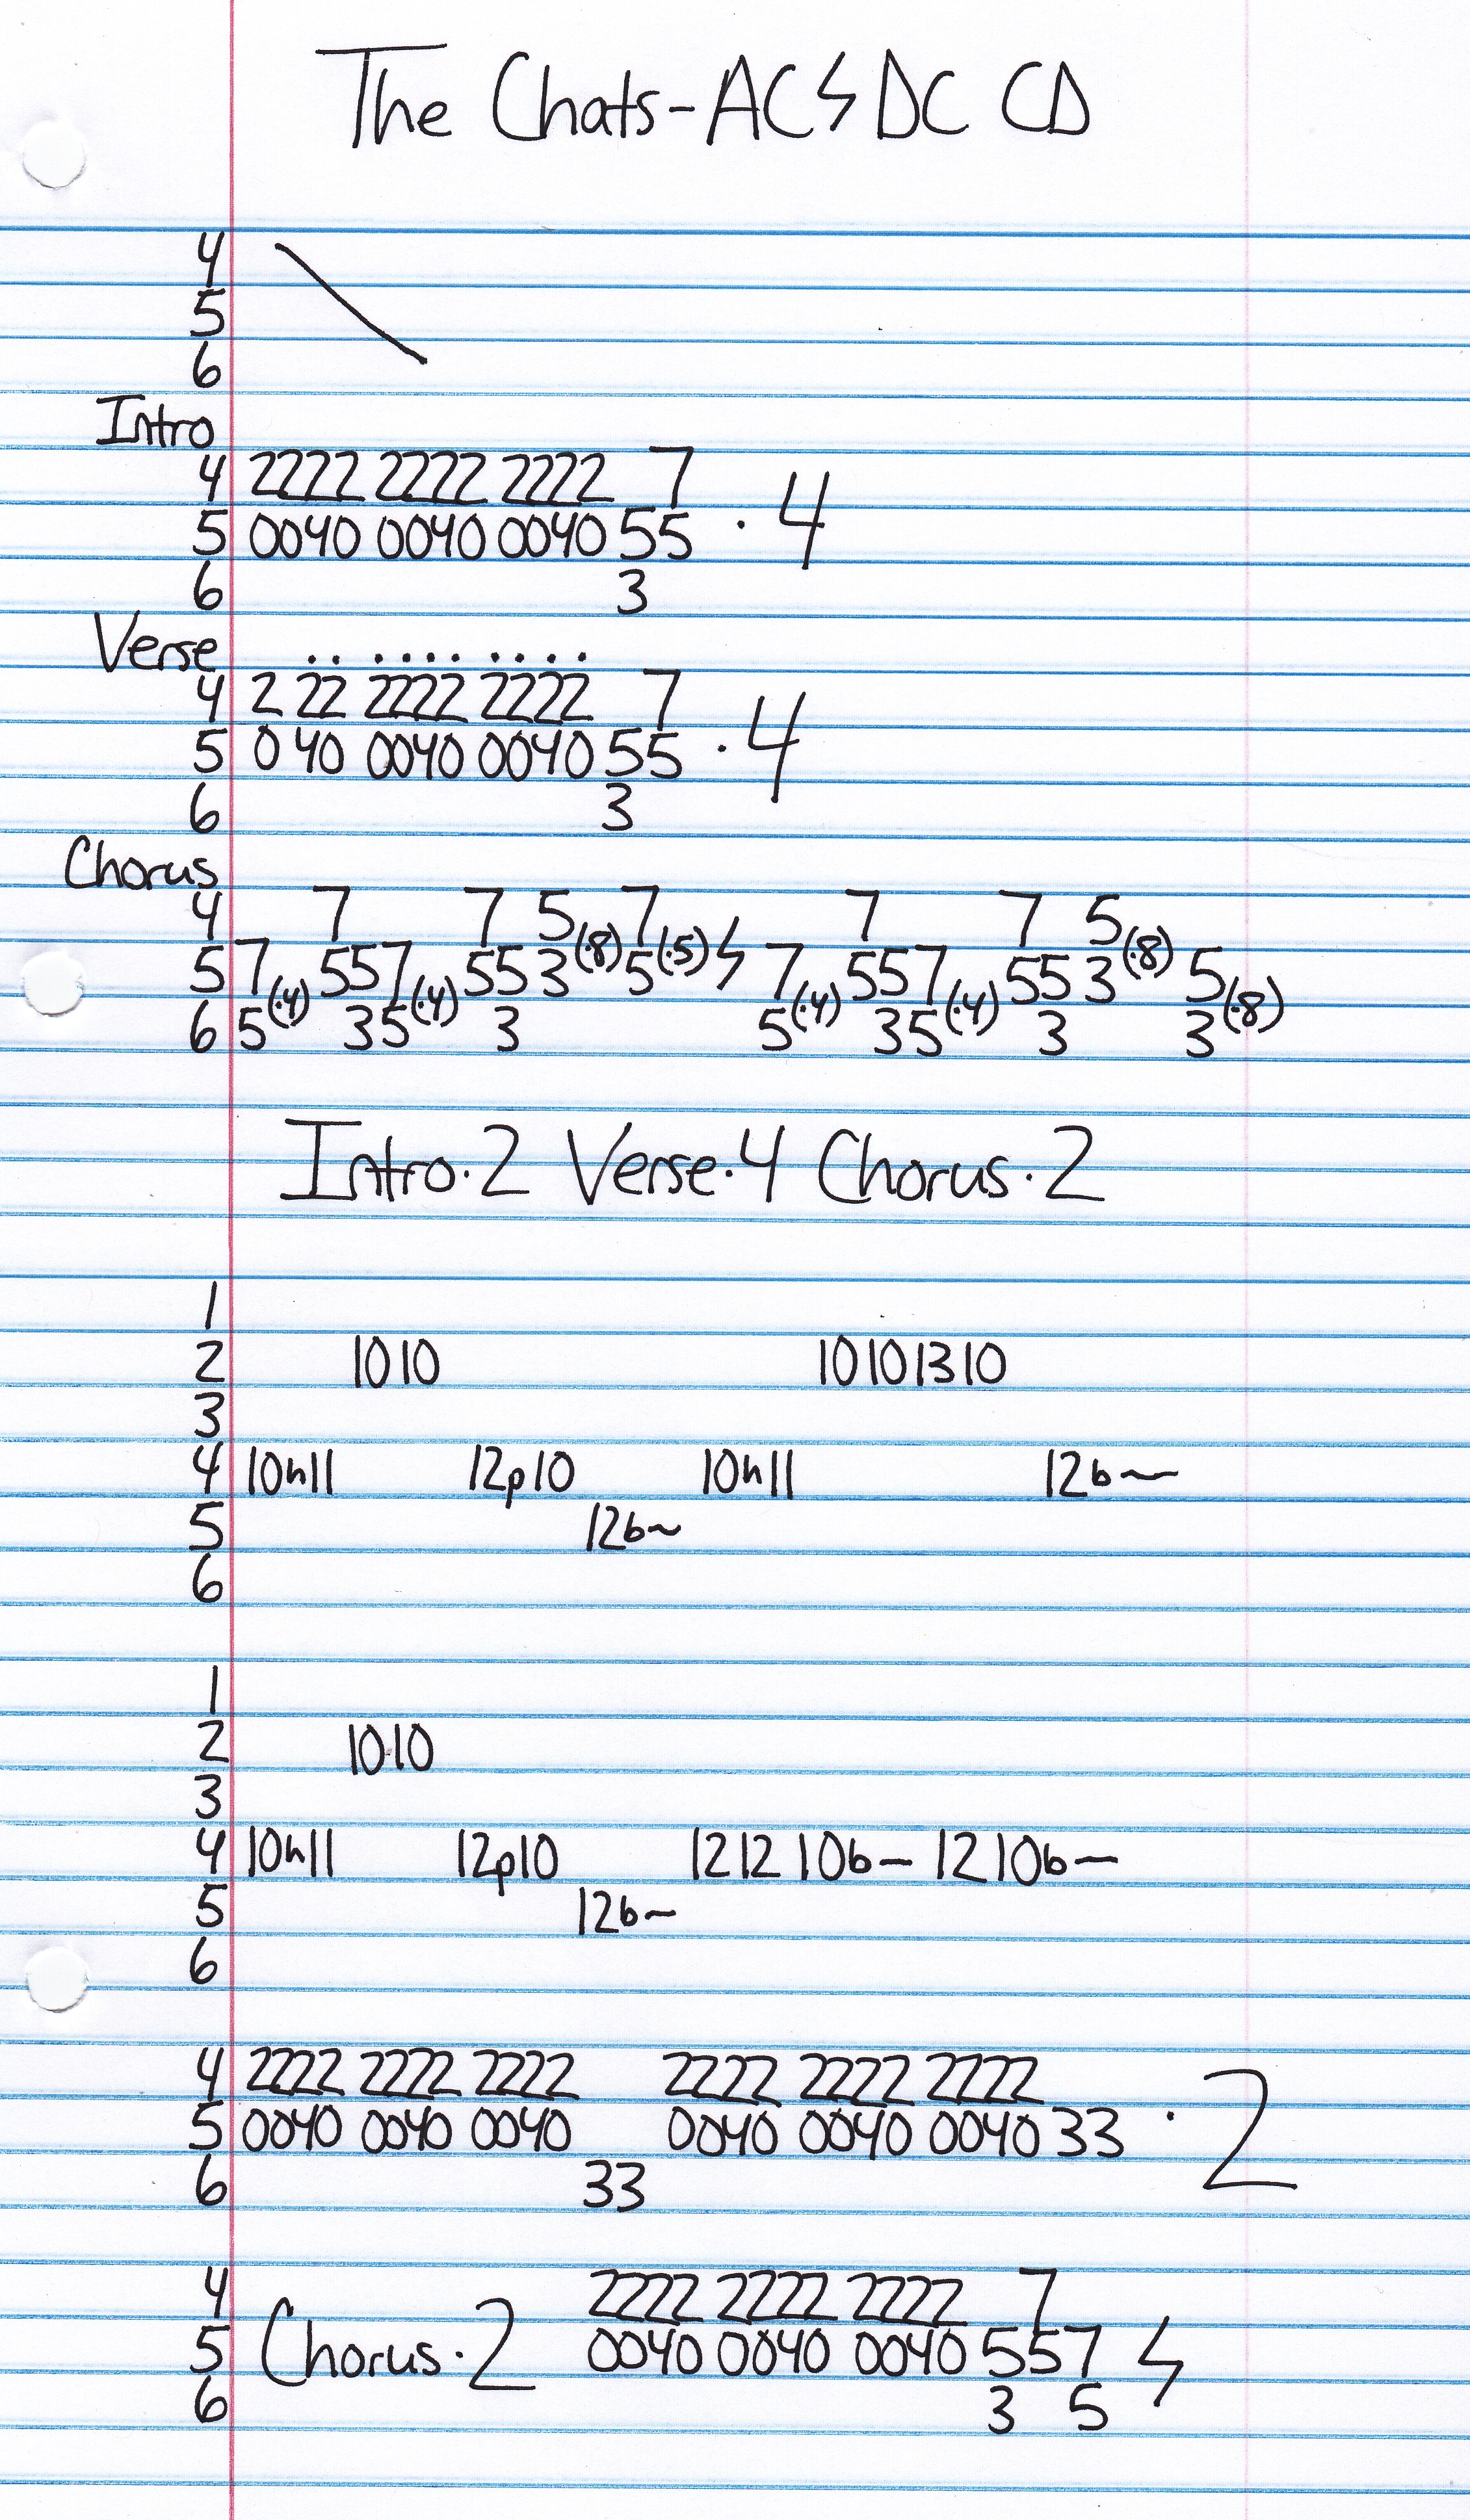 The Chats-AC⚡DC CD
4
5
6
Intro
4 2222 2222 2222 7
5 0040 0040 0040 55 · 4
6 3
Verse .. .... ....
4 2 22 2222 2222 7
5 0 40 0040 0040 55 · 4
6 3
Chorus
4 7 7 5 7 7 7 5
5 7 557 55 3(·8) 5(·5) ⚡ 7 557 55 3(·8) 5
6 5(·4) 35(·4) 3 5(·4) 35(·4) 3 3(·8)
Intro·2 Verse·4 Chorus·2
1
2 1010 10101310
3
4 10h11 12p10 10h11 12b~
5 12b~
6
1
2 1010
3
4 10h11 12p10 1212 10b~ 12 10b~
5 12b~
6
4 2222 2222 2222 2222 2222 2222
5 0040 0040 0040 0040 0040 0040 33 · 2
6 33
4 2222 2222 2222 7
5 Chorus·2 0040 0040 0040 557 ⚡
6 3 5